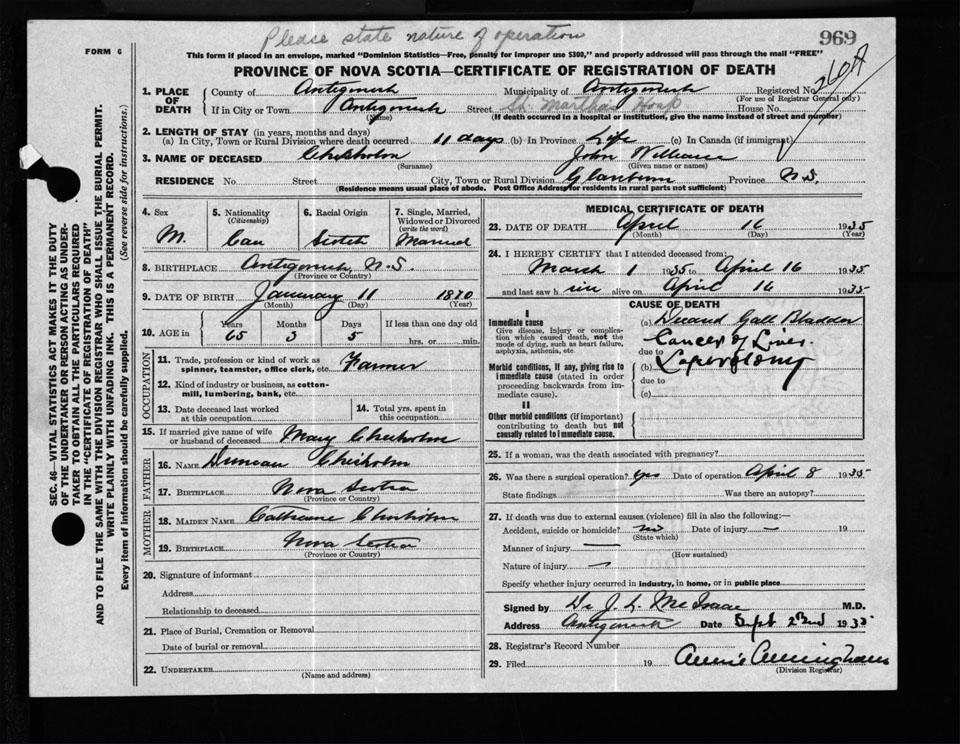 Please state nature of operation
969
FORM 6
This form if placed in an envelope, marked "Dominion Statistics—Free, penalty for improper use $300," and properly addressed will pass through the mail "FREE"
PROVINCE OF NOVA SCOTIA—CERTIFICATE OF REGISTRATION OF DEATH
1. PLACE OF DEATH County of Antigonish Municipality of Antigonish Registered No.
(For use of Registrar General only)
If in City or Town Antigonish Street St. Marthas Hosp House No.
(Name) (If death occurred in a hospital or institution, give the name instead of street and number)
2. LENGTH OF STAY (in years, months and days)
(a) In City, Town or Rural Division where death occurred 11 days (b) In Province Life (c) In Canada (if immigrant)
3. NAME OF DECEASED Chisholm John William
(Surname) (Given name or names)
RESIDENCE No. Street City, Town or Rural Division Province N.S.
(Residence means usual place of abode. Post Office Address for residents in rural parts not sufficient)
SEC. 46—VITAL STATISTICS ACT MAKES IT THE DUTY
OF THE UNDERTAKER OR PERSON ACTING AS UNDER-
TAKER TO OBTAIN ALL THE PARTICULARS REQUIRED
IN THE "CERTIFICATE OF REGISTRATION OF DEATH"
AND TO FILE THE SAME WITH THE DIVISION REGISTRAR WHO SHALL ISSUE THE BURIAL PERMIT.
WRITE PLAINLY WITH UNFADING INK. THIS IS A PERMANENT RECORD.
Every item of information should be carefully supplied. (See reverse side for instructions.)
4. Sex
M.
5. Nationality
(Citizenship)
Can
6. Racial Origin
Scotch
7. Single, Married,
Widowed or Divorced
(write the word)
Married
8. BIRTHPLACE Antigonish N.S.
(Province or Country)
9. DATE OF BIRTH January 11 1870
(Month) (Day) (Year)
10. AGE in Years Months Days If less than one day old
65 3 5 hrs. or min.
OCCUPATION
11. Trade, profession or kind of work as
spinner, teamster, office clerk, etc. Farmer
12. Kind of industry or business, as cotton-
mill, lumbering, bank, etc.
13. Date deceased last worked
at this occupation
14. Total yrs. spent in
this occupation
15. If married give name of wife
or husband of deceased Mary Chisholm
FATHER
16. NAME Duncan Chisholm
17. BIRTHPLACE Nova Scotia
(Province or Country)
MOTHER
18. MAIDEN NAME Catherine Chisholm
19. BIRTHPLACE Nova Scotia
(Province or Country)
20. Signature of informant
Address
Relationship to deceased
21. Place of Burial, Cremation or Removal
Date of burial or removal
22. UNDERTAKER
(Name and address)
MEDICAL CERTIFICATE OF DEATH
23. DATE OF DEATH April 16 1935
(Month) (Day) (Year)
24. I HEREBY CERTIFY that I attended deceased from:
March 1 1935 to April 16 1935
and last saw h im alive on April 16 1935
CAUSE OF DEATH
I
Immediate cause
Give disease, injury or complica-
tion which caused death, not the
mode of dying, such as heart failure,
asphyxia, asthenia, etc.
Morbid conditions, if any, giving rise to
immediate cause (stated in order
proceeding backwards from im-
mediate cause).
II
Other morbid conditions (if important)
contributing to death but not
causally related to immediate cause.
(a) Gall Bladder
Cancer of Liver.
due to
(b) Laperotomy
due to
(c)
25. If a woman, was the death associated with pregnancy?
26. Was there a surgical operation? yes Date of operation April 8 1935
State findings Was there an autopsy?
27. If death was due to external causes (violence) fill in also the following:—
Accident, suicide or homicide? no Date of injury — 19
(State which)
Manner of injury —
(How sustained)
Nature of injury —
Specify whether injury occurred in industry, in home, or in public place
Signed by Dr J. L. McIsaac M.D.
Address Antigonish Date Sept 23rd 1935
28. Registrar's Record Number
29. Filed 19 Annie Cunningham
(Division Registrar)